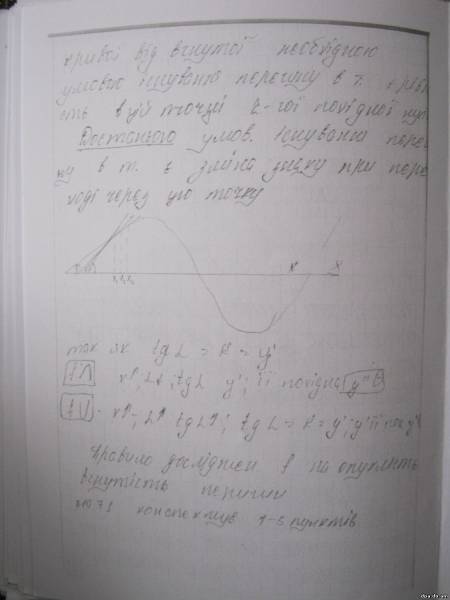 кривої від вгнутої необхідною
умовою існування перегину в т. є рівн
сть в цій точці 2-гої похідної нул
Достатньою умов. існування пере
ну в т. є зміна знаку при пере
ході через цю точку
x₁ x₂ x₃
x
так як tg L = k = y'
x↑; L↓; tg L y'; її похідна y''
x↑; L↑ tg L↑; tg L = k = y'; y' її пох y''
Правило досліджен f на опуклість
вгнутість перегин
конспектув 1-5 пунктів
dpa.do.am